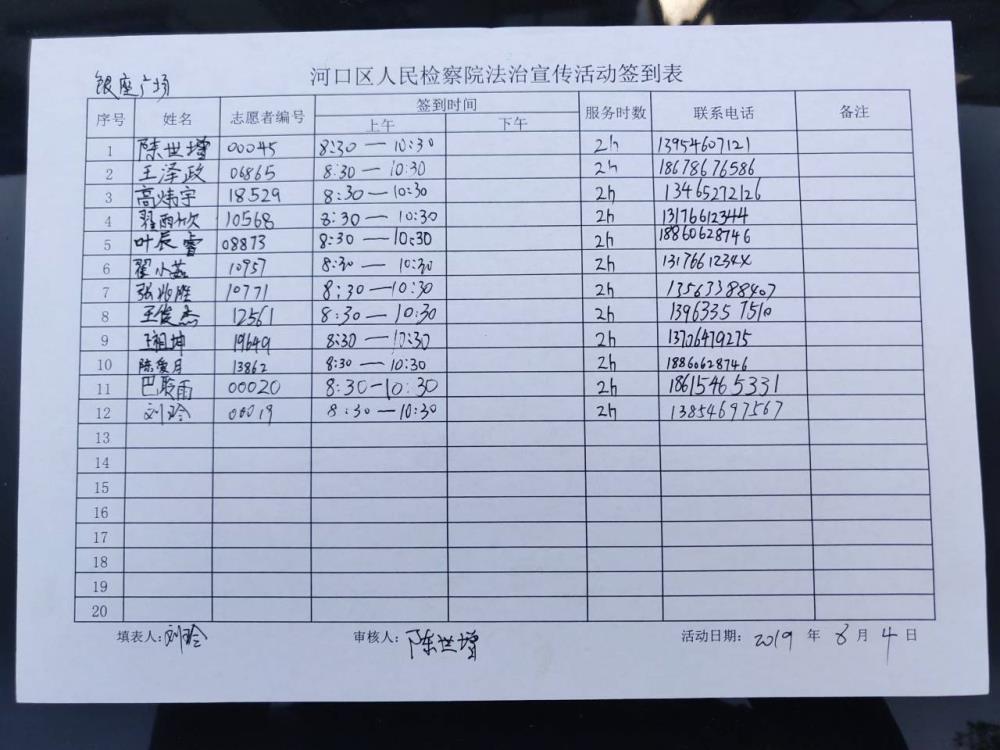 河口区人民检察院法治宣传活动签到表
银座广场
序号 姓名 志愿者编号 签到时间 服务时数 联系电话 备注
上午 下午
1 陈世增 00045 8:30—10:30 2h 13954607121
2 王泽政 06865 8:30—10:30 2h 18678676586
3 高炜宇 18529 8:30—10:30 2h 13465272126
4 翟雨欣 10568 8:30—10:30 2h 13176612344
5 叶辰睿 08873 8:30—10:30 2h 18860628746
6 翟小燕 10957 8:30—10:30 2h 1317661234X
7 张兆胜 10771 8:30—10:30 2h 13563388407
8 王俊杰 12561 8:30—10:30 2h 13963357510
9 坤 19649 8:30—10:30 2h 13706479275
10 陈爱月 13862 8:30—10:30 2h 18860628746
11 巴雨 00020 8:30—10:30 2h 18615465331
12 刘玲 00019 8:30—10:30 2h 13854697567
13
14
15
16
17
18
19
20
填表人:刘玲 审核人:陈世增 活动日期: 2019 年 8 月 4 日